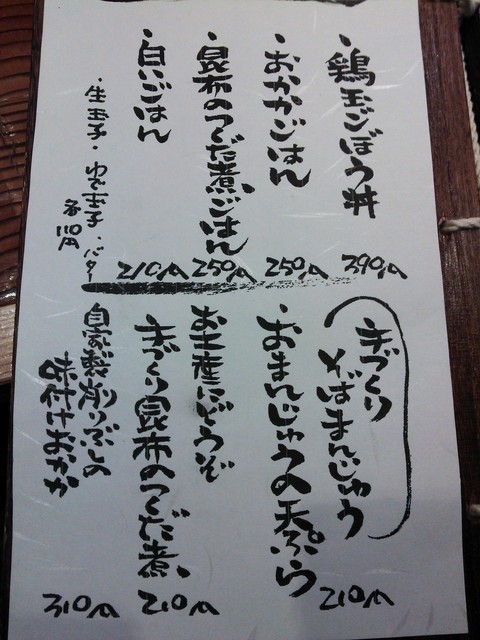 ・鶏玉ごぼう丼
390円
・おかかごはん
250円
・昆布のつくだ煮ごはん
250円
・白いごはん
210円
・生玉子・ゆで玉子・バター
各110円
手づくり
そばまんじゅう
おまんじゅうの天ぷら
210円
お土産にどうぞ
手づくり昆布のつくだ煮
210円
自家製削りぶしの
味付けおかか
310円